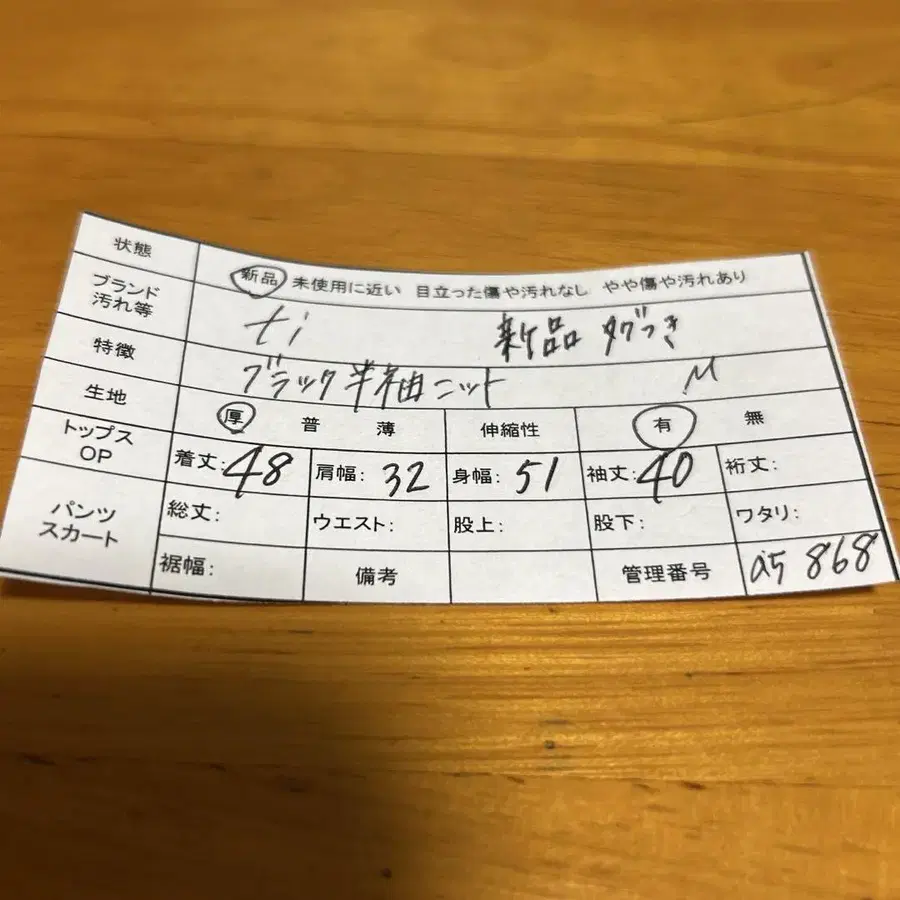 状態 新品 未使用に近い 目立った傷や汚れなし やや傷や汚れあり
ブランド 汚れ等 ti 新品 タグつき
特徴 ブラック半袖ニット M
生地 厚 普 薄 伸縮性 有 無
トップス OP 着丈:48 肩幅:32 身幅:51 袖丈:40 裄丈:
パンツ スカート 総丈: ウエスト: 股上: 股下: ワタリ:
裾幅: 備考 管理番号 a5 868